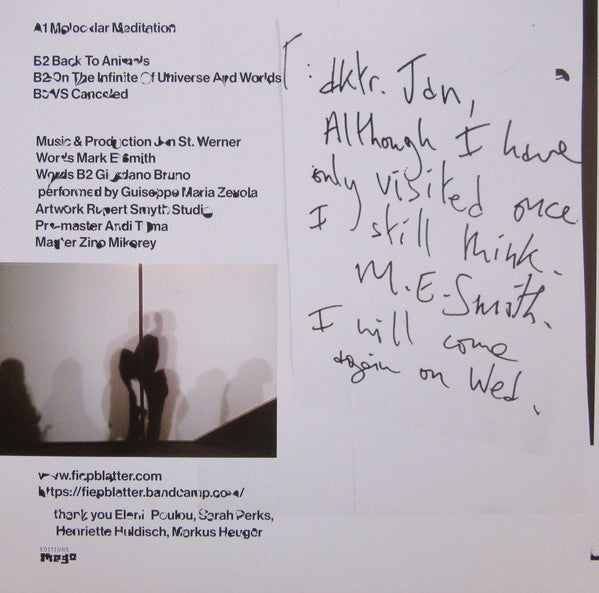 A1 Molocular Meditation
B2 Back To Animals
B2 On The Infinite Of Universe And Worlds
B3 VS Canceled
Music & Production Jan St. Werner
Words Mark E Smith
Words B2 Giordano Bruno
performed by Guiseppe Maria Zevola
Artwork Rupert Smyth Studio
Pre-master Andi Toma
Master Zino Mikorey
www.fiepblatter.com
https://fiepblatter.bandcamp.com/
thank you Eleni Poulou, Sarah Perks,
Henriette Huldisch, Markus Heuger
EDITIONS
Mego
dktr. Jan,
Although I have
only visited once
I still think.
M.E. Smith.
I will come
again on Wed.